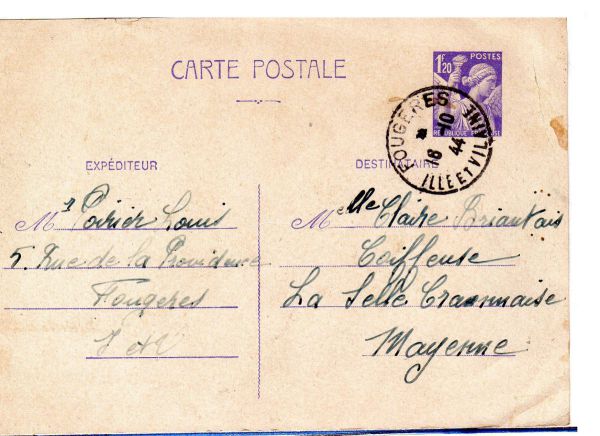 CARTE POSTALE
1F,20
POSTES
RÉPUBLIQUE FRANÇAISE
FOUGÈRES
* 18 -10 44
ILLE ET VILAINE
EXPÉDITEUR
Mr Poirier Louis
5. Rue de la Providence
Fougères
I et V
DESTINATAIRE
Melle Claire Briantais
Coiffeuse
La Selle Craonnaise
Mayenne